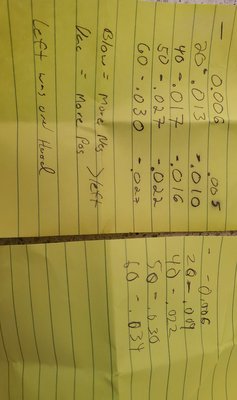 - 0.006
20 -.013 -.010 .005
40 -.017 -.016
50 -.027 -.022
60 -.030 -.027
Blow = More Neg >left
Vac = More Pos
Left was on Hood
- -0.006
20 -.019
40 -.022
50 -.030
60 -.034